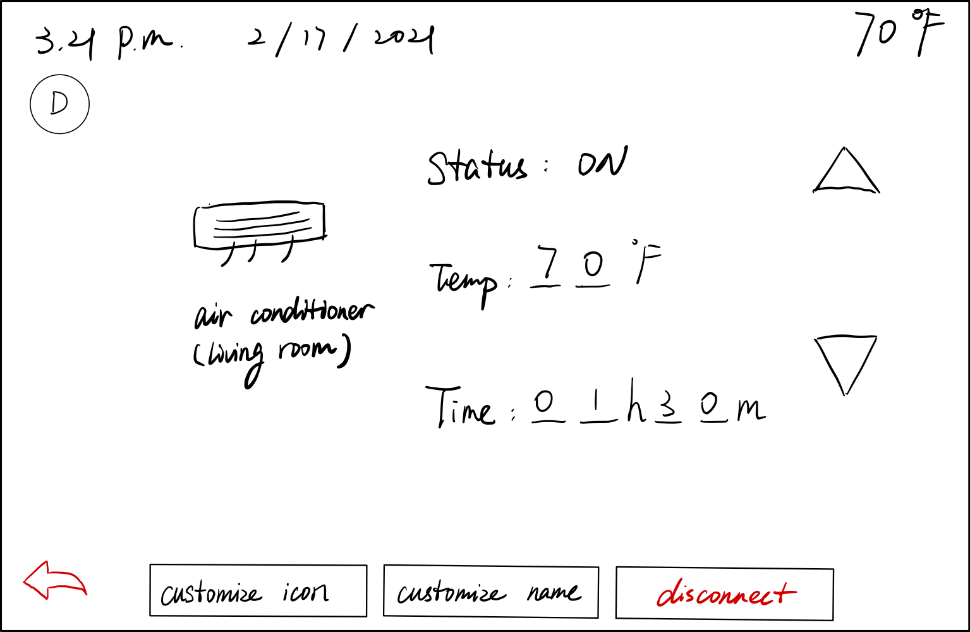 3.21 p.m. 2/17/2021 70°F
D
Status: ON
Temp: 70°F
air conditioner
(living room)
Time: 01h30m
customize icon customize name disconnect